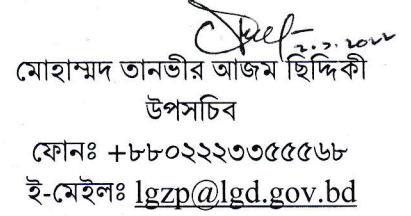 ২.১.২০২২
মোহাম্মদ তানভীর আজম ছিদ্দিকী
উপসচিব
ফোনঃ +৮৮০২২২৩৩৫৫৫৬৮
ই-মেইলঃ lgzp@lgd.gov.bd